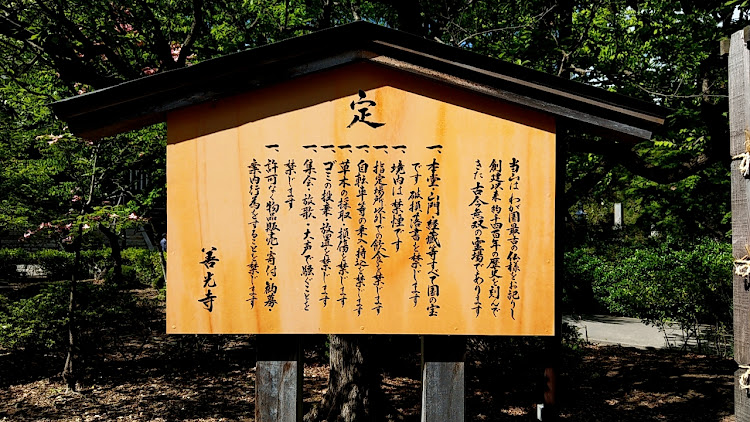 定
当山は、わが国最古の仏様をお祀りし
創建以来、約千四百年の歴史を刻んで
きた、古今無双の霊場であります
一、本堂・山門・経蔵等すべて国の宝
です 破損・落書を禁じます
一、境内は、禁煙です
一、指定場所以外での飲食を禁じます
一、自転車等の乗入・持込を禁じます
一、草木の採取・損傷を禁じます
一、ゴミの投棄・放置を禁じます
一、集会・放歌・大声で騒ぐことを
禁じます
一、許可なく物品販売・寄付・勧募・
案内行為をすることを禁じます
善光寺